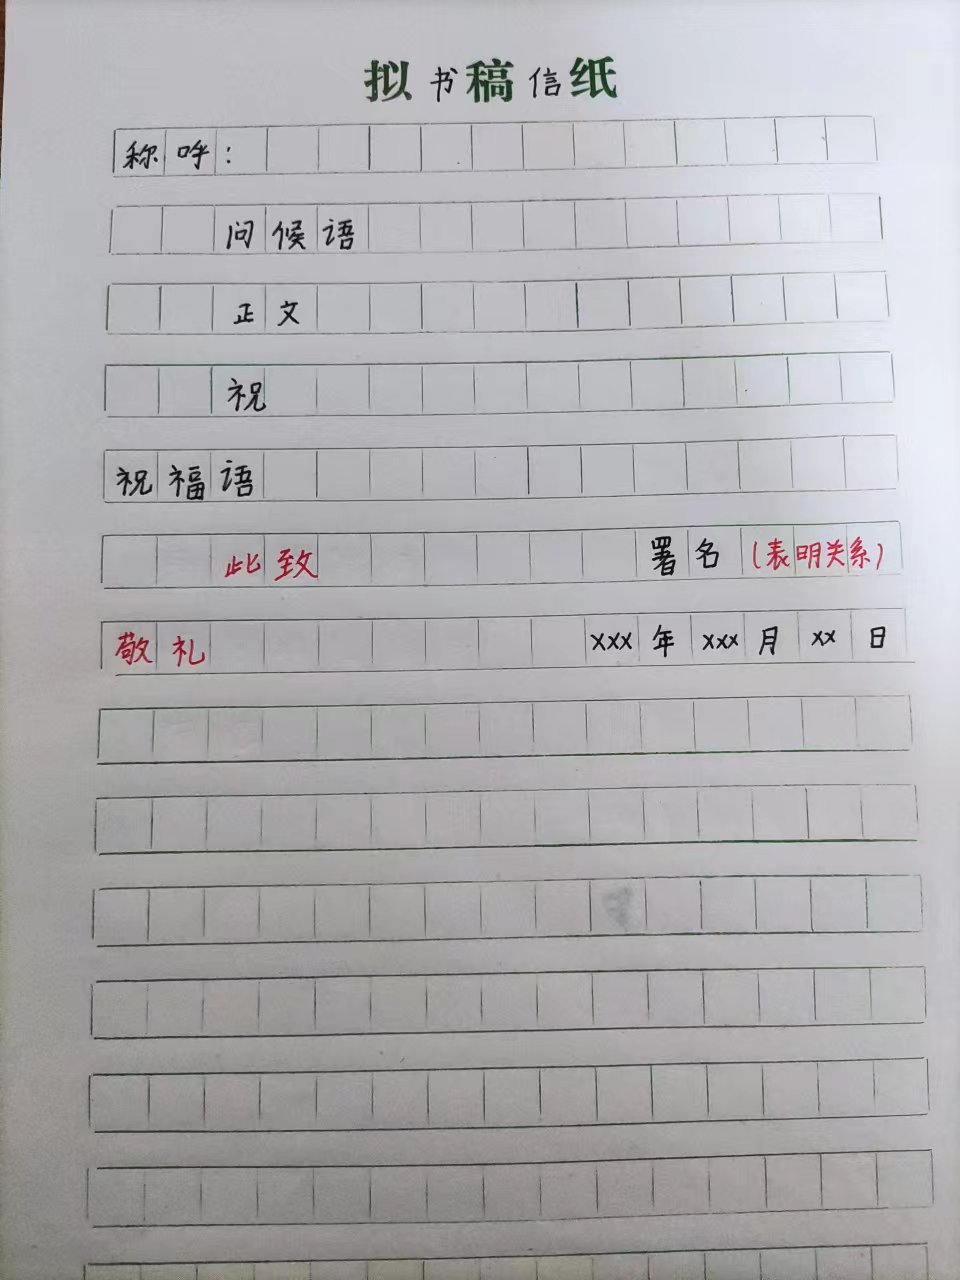 拟书稿信纸
称呼：
问候语
正文
祝
祝福语
此致 署名（表明关系）
敬礼 xxx年xxx月xx日